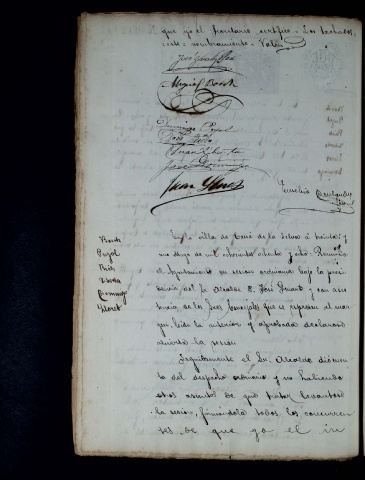 que yo el Secretario certifico = Los tachados
este = nombramiento = Valen
Miguel Bosch
Domingo Pujol
José
Juan
José Domingo
Juan Lloret
Bosch
Pujol
Domingo
Lloret
En la villa de de la Selva á treinta y
uno Mayo de mil ochocientos ochenta y ocho: Reunido
el Ayuntamiento en sesion ordinaria bajo la presi
dencia del Sr. Alcalde D. José y con asis
tencia de los Sres Concejales que se espresan al mar
gen, leida la anterior y aprobada declarose
abierta la sesion
Seguidamente el Sr. Alcalde dio cuen
ta del despacho ordinario y no habiendo
otros asuntos de que tratar levantose
la sesion, firmandola todos los concurren
tes de que yo el in